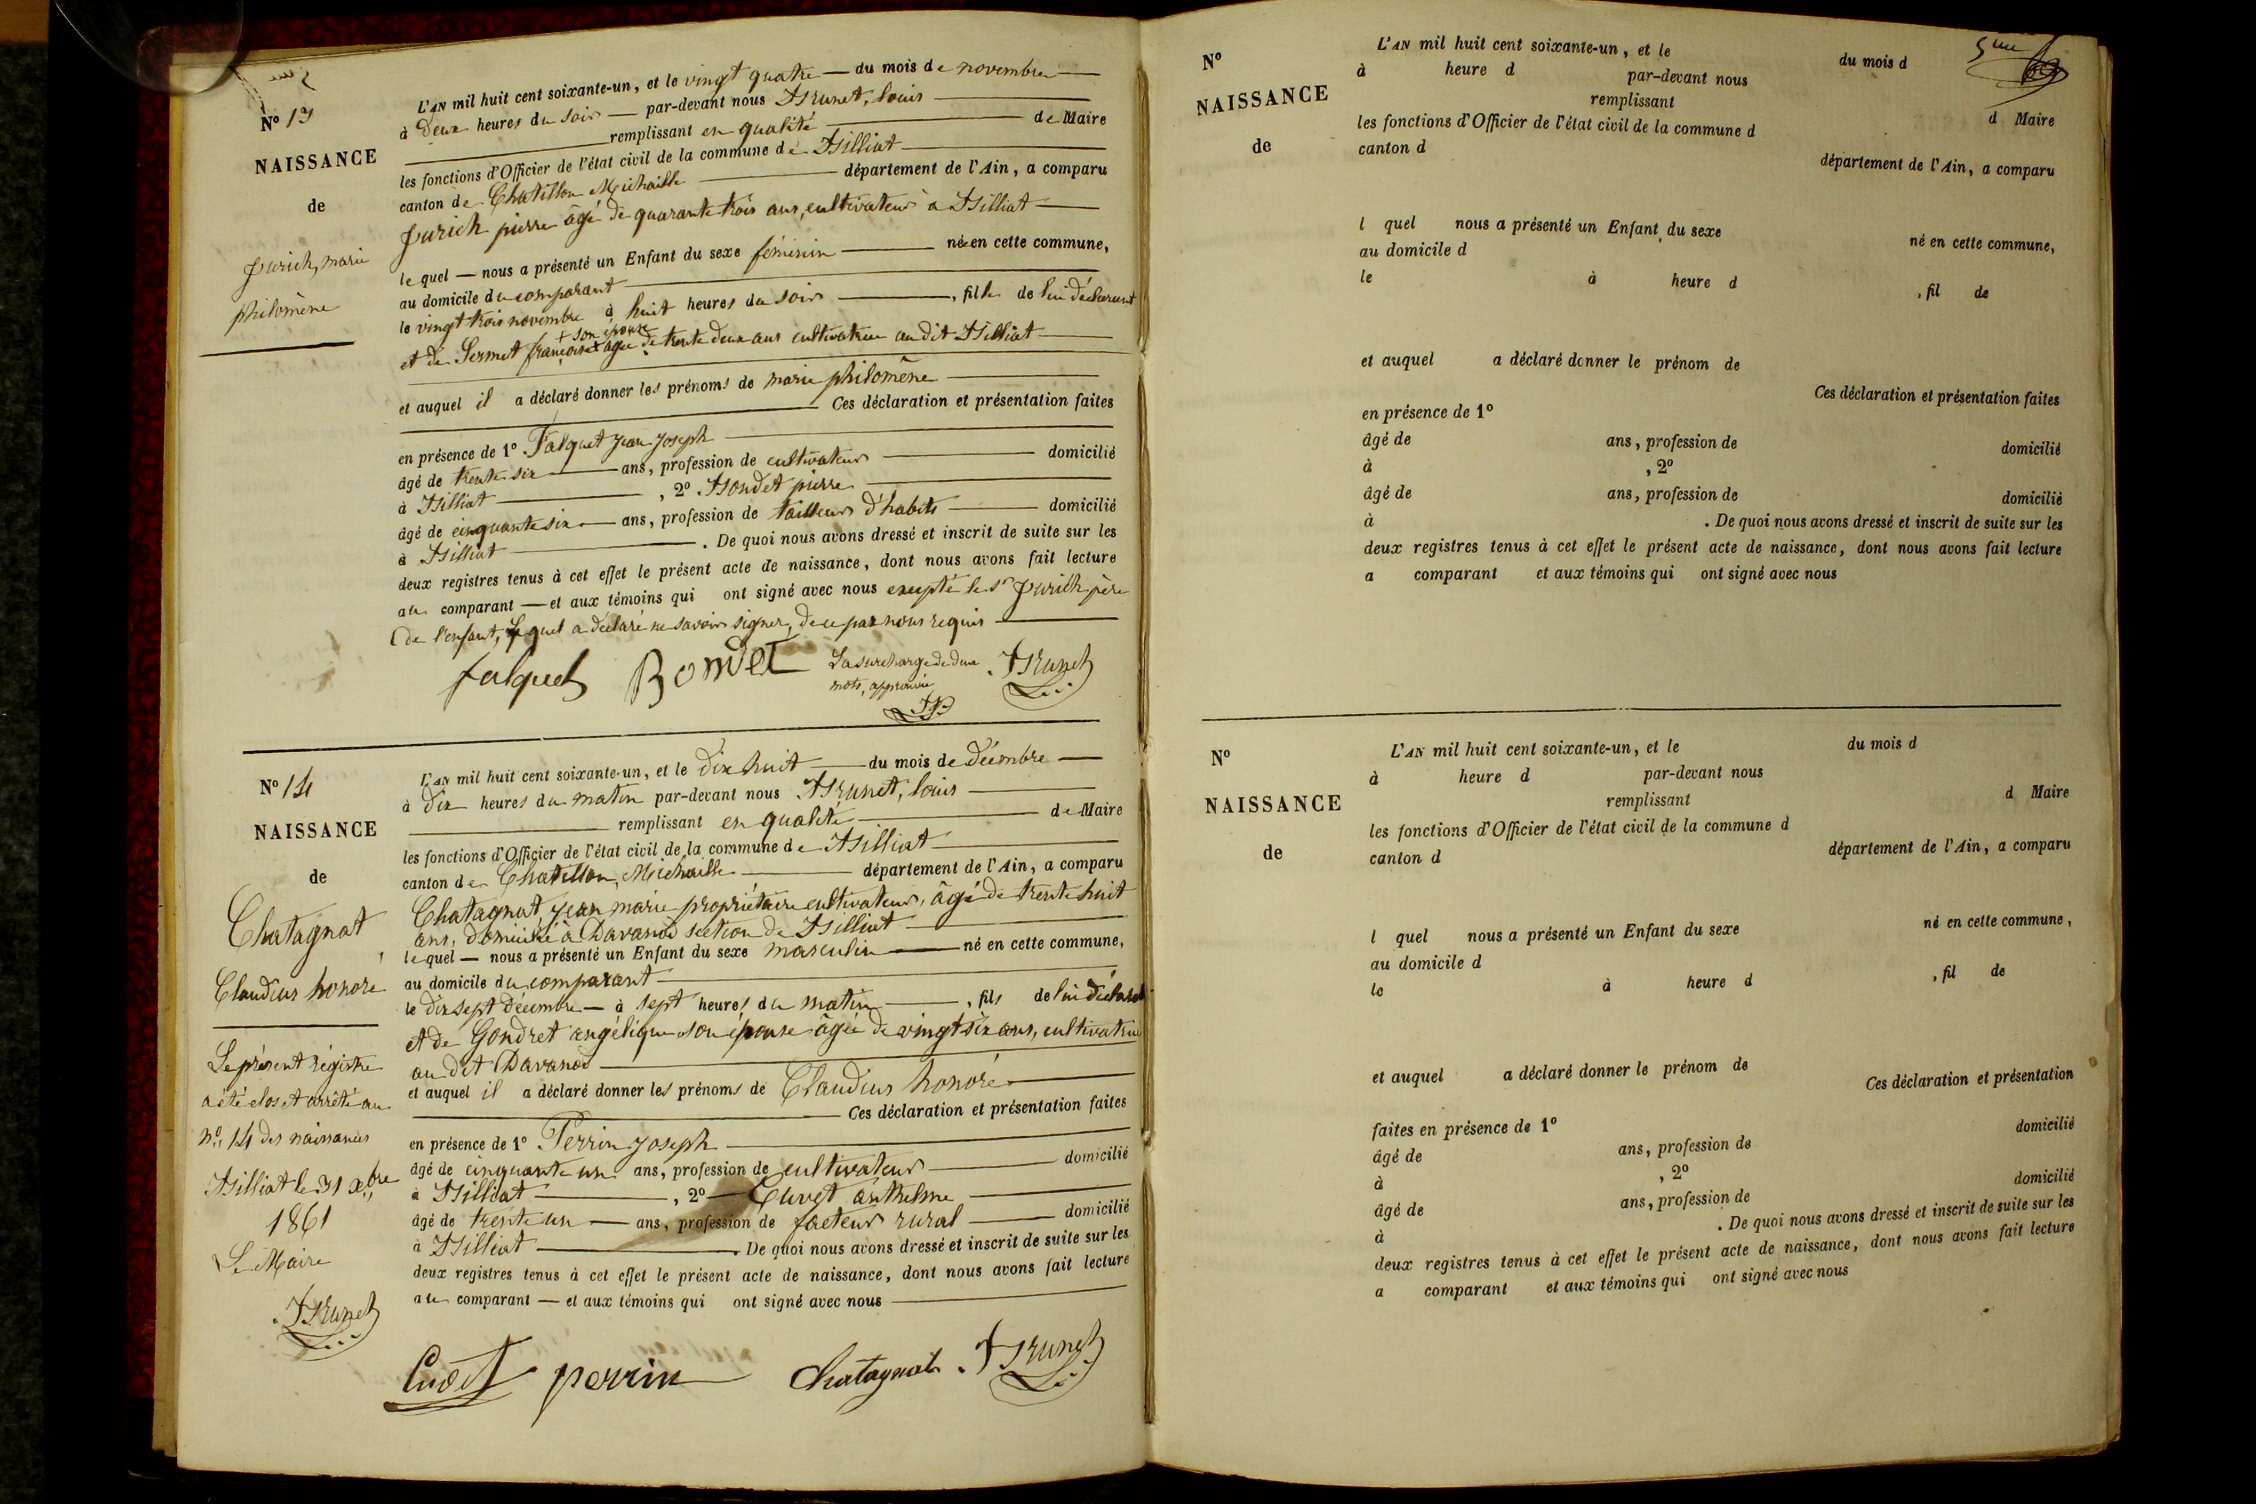 N° 13
NAISSANCE
de
Jurich, marie
philomène
L'AN mil huit cent soixante-un, et le vingt quatre — du mois de novembre —
à deux heures du soir — par-devant nous Brunet, louis —
remplissant en qualité — de Maire
les fonctions d'Officier de l'état civil de la commune de Billiat —
canton de Chatillon Michaille — département de l'Ain, a comparu
Jurich pierre âgé de quarante trois ans, cultivateur à Billiat —
lequel — nous a présenté un Enfant du sexe féminin — née en cette commune,
au domicile du comparant —
le vingt trois novembre à huit heures du soir —, fille de lui déclarant
+ son épouse
et de Sermet françoise + âgée de trente deux ans cultivatrice au dit Billiat —
et auquel il a déclaré donner les prénoms de marie philomène —
Ces déclaration et présentation faites
en présence de 1° Falquet jean joseph —
âgé de trente six — ans, profession de cultivateur — domicilié
à Billiat —, 2° Bondet pierre —
âgé de cinquante six — ans, profession de tailleur d'habits — domicilié
à Billiat —. De quoi nous avons dressé et inscrit de suite sur les
deux registres tenus à cet effet le présent acte de naissance, dont nous avons fait lecture
au comparant — et aux témoins qui ont signé avec nous excepté le sr Jurich père
de l'enfant, lequel a déclaré ne savoir signer, de ce par nous requis —
falquet Bondet La surcharge de deux Brunet
mots, approuvée
LB
N° 14
NAISSANCE
de
Chatagnat,
Claudius honoré
Le présent régistre
a été clos et arrêté au
n° 14 des naissances
Billiat le 31 xbre
1861
Le Maire
Brunet
L'AN mil huit cent soixante-un, et le dix huit — du mois de décembre —
à dix heures du matin par-devant nous Brunet, louis —
remplissant en qualité — de Maire
les fonctions d'Officier de l'état civil de la commune de Billiat —
canton de Chatillon, Michaille — département de l'Ain, a comparu
Chatagnat, jean marie propriétaire cultivateur, âgé de trente huit
ans, domicilié à Davanod section de Billiat —
lequel — nous a présenté un Enfant du sexe masculin — né en cette commune,
au domicile du comparant —
le dix sept décembre — à sept heures du matin —, fils de lui déclarant
et de Gondret angélique son épouse âgée de vingt six ans, cultivatrice
au dit Davanod —
et auquel il a déclaré donner les prénoms de Claudius honoré —
Ces déclaration et présentation faites
en présence de 1° Perrin joseph —
âgé de cinquante un ans, profession de cultivateur — domicilié
à Billiat —, 2° — Cuvet anthelme —
âgé de trente un — ans, profession de facteur rural — domicilié
à Billiat —. De quoi nous avons dressé et inscrit de suite sur les
deux registres tenus à cet effet le présent acte de naissance, dont nous avons fait lecture
au comparant — et aux témoins qui ont signé avec nous —
perrin Chatagnat Brunet
5me
N°
NAISSANCE
de
L'AN mil huit cent soixante-un, et le du mois d
à heure d par-devant nous
remplissant d Maire
les fonctions d'Officier de l'état civil de la commune d
canton d département de l'Ain, a comparu
l quel nous a présenté un Enfant du sexe né en cette commune,
au domicile d
le à heure d , fil de
et auquel a déclaré donner le prénom de
Ces déclaration et présentation faites
en présence de 1°
âgé de ans, profession de domicilié
à , 2°
âgé de ans, profession de domicilié
à . De quoi nous avons dressé et inscrit de suite sur les
deux registres tenus à cet effet le présent acte de naissance, dont nous avons fait lecture
a comparant et aux témoins qui ont signé avec nous
N°
NAISSANCE
de
L'AN mil huit cent soixante-un, et le du mois d
à heure d par-devant nous
remplissant d Maire
les fonctions d'Officier de l'état civil de la commune d
canton d département de l'Ain, a comparu
l quel nous a présenté un Enfant du sexe né en cette commune,
au domicile d
le à heure d , fil de
et auquel a déclaré donner le prénom de
Ces déclaration et présentation
faites en présence de 1°
âgé de ans, profession de domicilié
à , 2°
âgé de ans, profession de domicilié
à . De quoi nous avons dressé et inscrit de suite sur les
deux registres tenus à cet effet le présent acte de naissance, dont nous avons fait lecture
a comparant et aux témoins qui ont signé avec nous